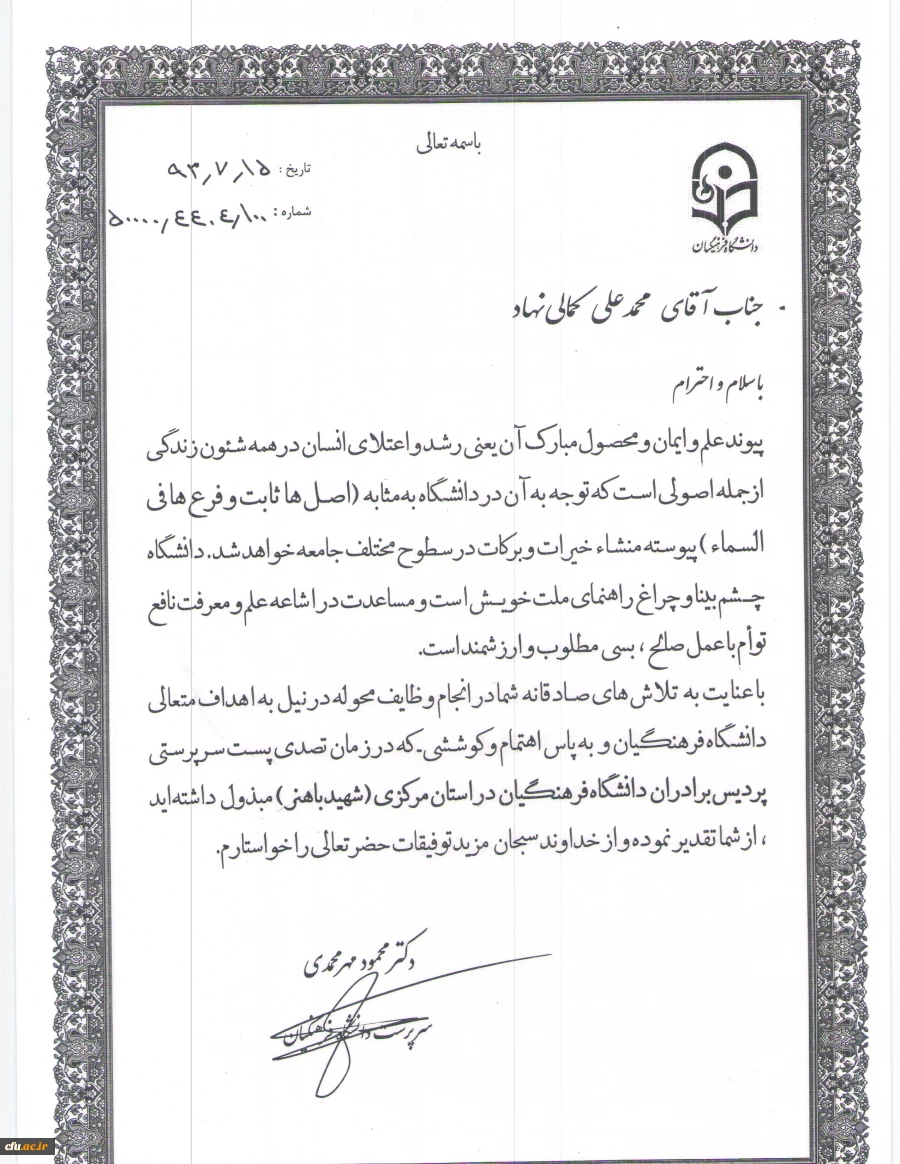 باسمه تعالی
تاریخ: ۹۳/۷/۱۵
شماره: ۵۰۰۰۰/۴۴۰۴/۱۰۰
دانشگاه فرهنگیان
جناب آقای محمد علی کمالی نهاد
با سلام و احترام
پیوند علم و ایمان و محصول مبارک آن یعنی رشد و اعتلای انسان در همه شئون زندگی
از جمله اصولی است که توجه به آن در دانشگاه به مثابه (اصل ها ثابت و فرع ها فی
السماء) پیوسته منشاء خیرات و برکات در سطوح مختلف جامعه خواهد شد. دانشگاه
چشم بینا و چراغ راهنمای ملت خویش است و مساعدت در اشاعه علم و معرفت نافع
توأم با عمل صالح، بسی مطلوب و ارزشمند است.
با عنایت به تلاش های صادقانه شما در انجام وظایف محوله در نیل به اهداف متعالی
دانشگاه فرهنگیان و به پاس اهتمام و کوششی که در زمان تصدی پست سرپرستی
پردیس برادران دانشگاه فرهنگیان در استان مرکزی (شهید باهنر) مبذول داشته اید
، از شما تقدیر نموده و از خداوند سبحان مزید توفیقات حضرتعالی را خواستارم.
دکتر محمود مهرمحمدی
سرپرست دانشگاه فرهنگیان
cfu.ac.ir